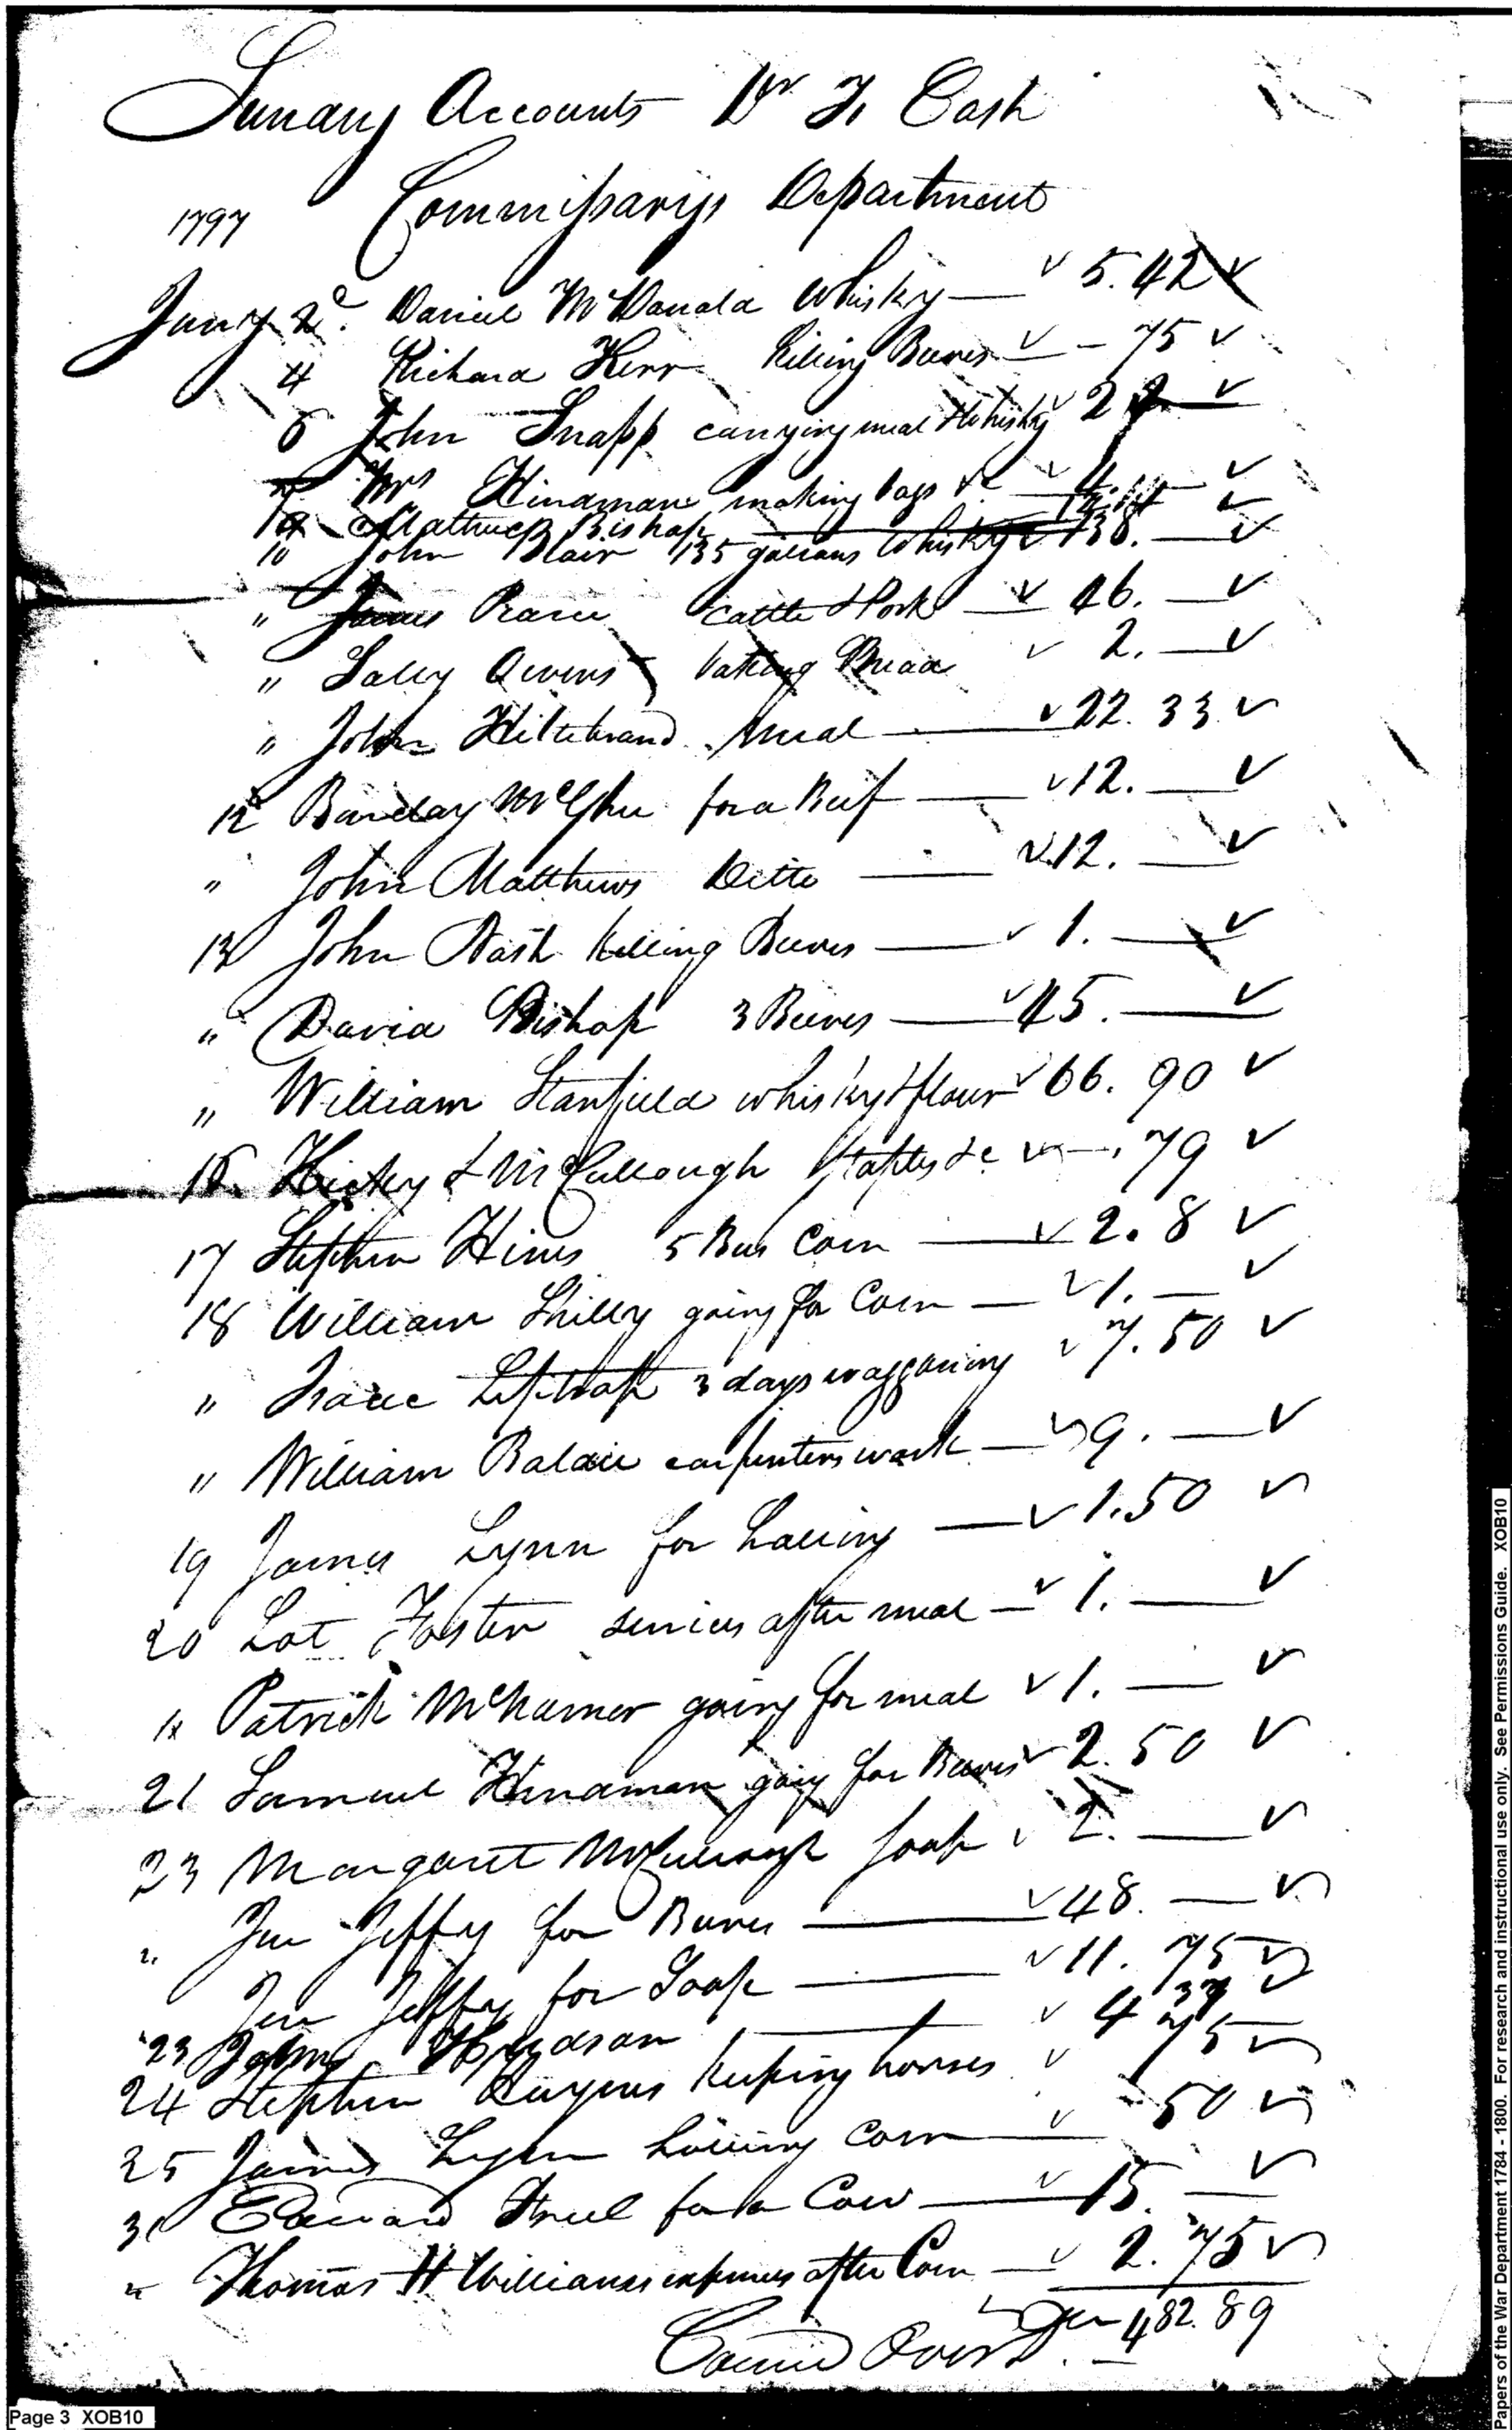 Sundry Accounts Dr To Cash
Commissarys Department
1797
Jany 2d. Daniel McDonald Whisky — 5.42
4 Richard Kerr Killing Beeves — 75
6 John Snapp carrying meal & Whisky 2
7 Mrs Hindman making bags &c — 4. —
Matthew Bishop — 12.14
10 John Blair 135 gallons Whisky 138. —
" James Pearce Cattle & Pork — 46. —
" Sally Owens baking Bread 2. —
" John Hiltebrand Meal — 22. 33
12 Barclay McGhee for a Beef — 12. —
" John Matthews Ditto — 12. —
13 John Nash Killing Beeves — 1. —
" David Bishop 3 Beeves — 45. —
" William Stanfield whisky & flour 66. 90
15 & McCullough Staples &c — . 79
17 Stephen Hines 5 Bus Corn — 2. 8
18 William Shilly going for Corn — 1. —
" Isaac 3 days waggoning 7. 50
" William carpenters work — 9. —
19 James Lynn for Halling — 1.50
20 Lot Foster services after meal — 1. —
" Patrick going for meal 1. —
21 Samuel Hindman going for Beeves 2. 50
23 Margaret McCullough soap 2. —
" Jeffry for Beeves — 48. —
Jeffry for Soap — 11. 75
23 John Hudson — 4 37
24 Stephen keeping horses 75
25 James Lynn Halling Corn — 50
31 Edward Steel for a Cow — 15. —
" Thomas H Williams expenses after Corn — 2. 75
Carried Over — 482.89
Page 3 XOB10
Papers of the War Department 1784 - 1800. For research and instructional use only. See Permissions Guide. XOB10